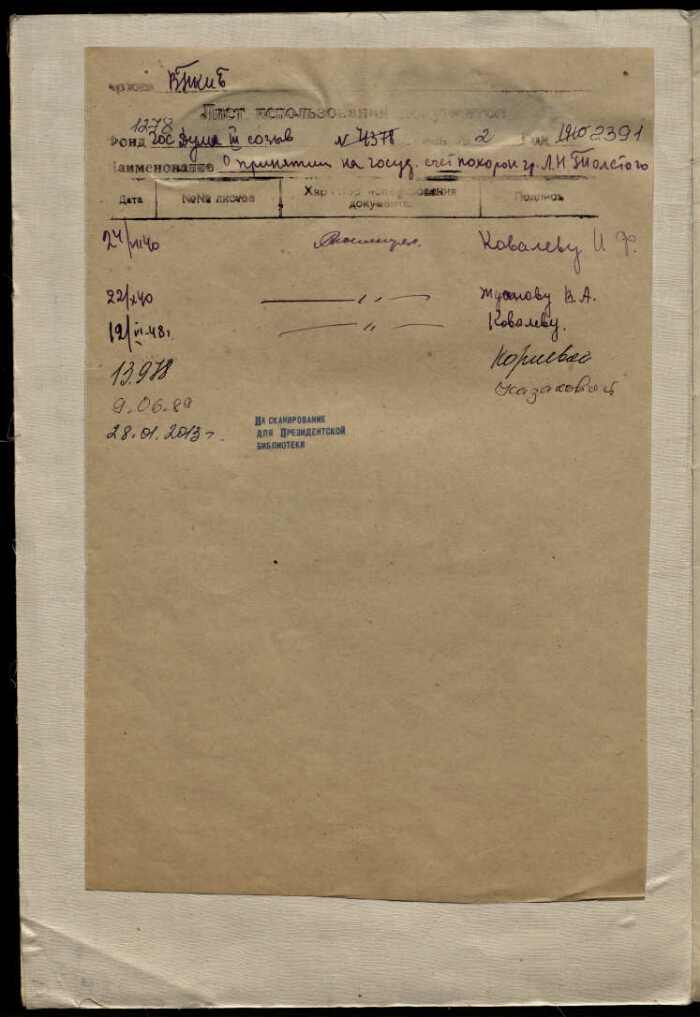 Лист использования документов
1278
Фонд Гос Дума III созыв N 4378 2 1910 2391
Наименование О принятии на госуд. счет похорон гр. Л.Н. Толстого
Дата №№ листов Характер использования документа Подпись
Ковалеву И. Ф.
22/X 40 — " — Жданову В.А.
12/VI.48г. — " — Ковалеву.
13.9.78
9.06.89 Казаковой
28.01.2013 г.
НА СКАНИРОВАНИЕ
ДЛЯ ПРЕЗИДЕНТСКОЙ
БИБЛИОТЕКИ